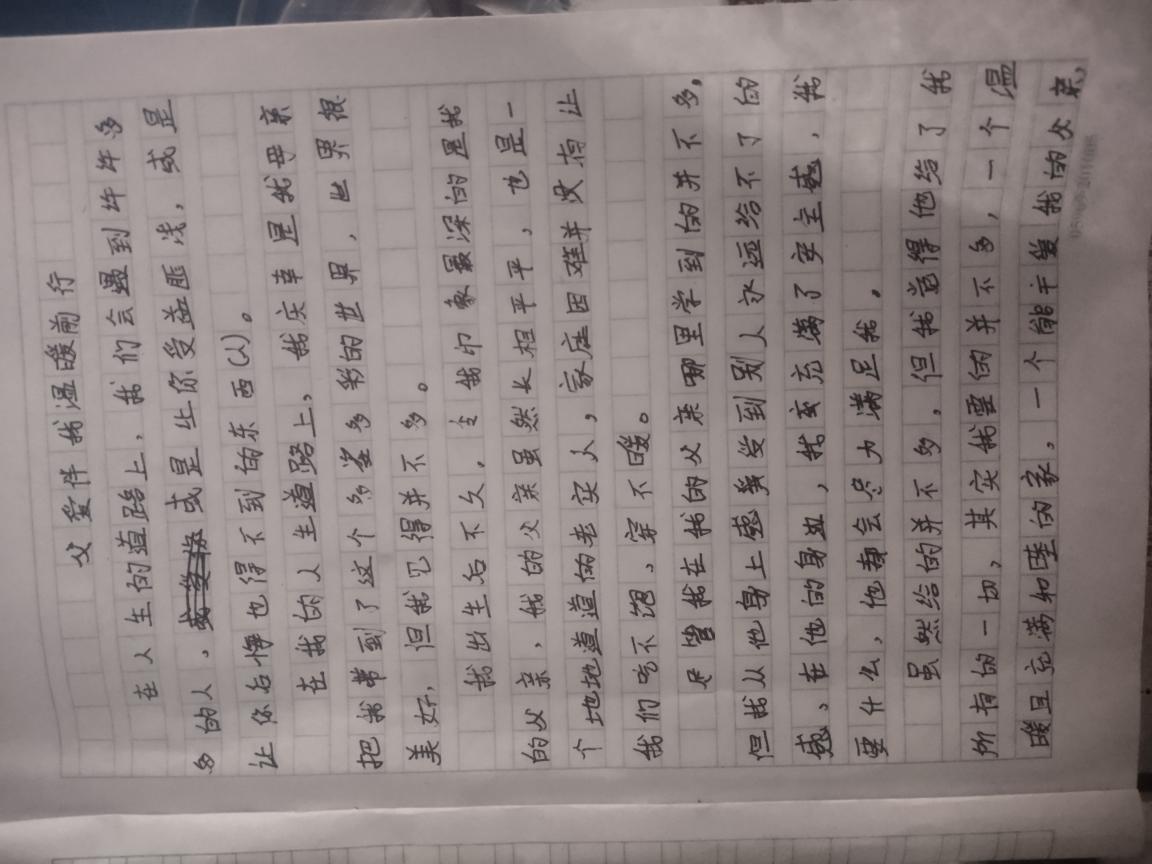 父爱伴我温暖前行
在人生的道路上，我们会遇到许许多
多的人，或是让你受益匪浅，或是
让你后悔也得不到的东西(人)。
在我的人生道路上，我庆幸是我母亲
把我带到了这个多姿多彩的世界，世界很
美好，但我记得并不多。
我出生后不久，令我印象最深的是我
的父亲，我的父亲虽然长相平平，也是一
个地地道道的老实人，家庭困难并没有让
我们吃不饱、穿不暖。
尽管我在我的父亲哪里学到的并不多，
但我从他身上感受到别人永远给不了的
感。在他的身上，我充满了安全感，我
要什么，他都会尽力满足我。
虽然给的并不多，但我觉得他给了我
所有的一切，其实我要的并不多，一个温
暖且充满和睦的家，一个能主爱我的父亲，